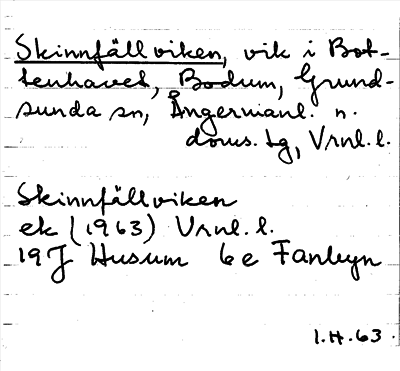 Skinnfällviken, vik i Bot-
tenhavet, Bodum, Grund-
sunda sn, Ångermanl. n.
doms. tg, Vrnl. l.
Skinnfällviken
ek (1963) Vrnl. l.
19J Husum 6e Fanbyn
I.H. 63.